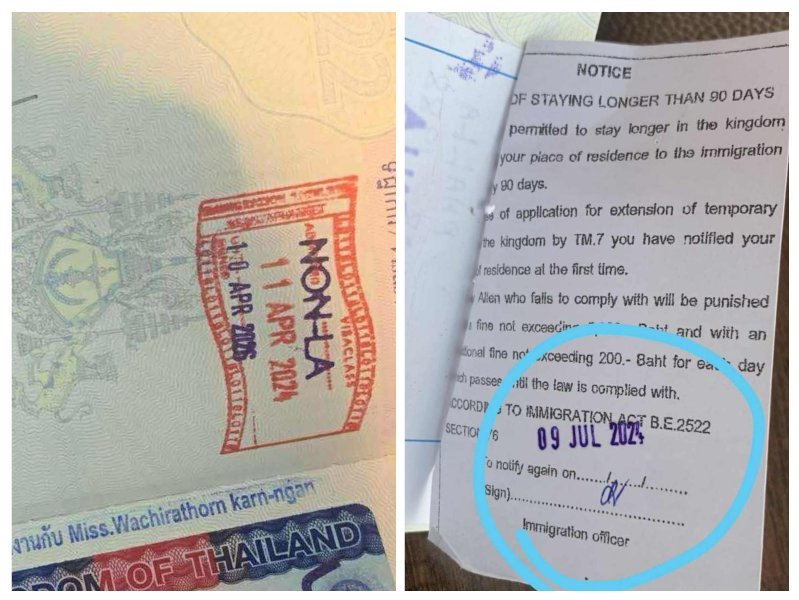 VISACLASS
NON-LA
11 APR 2024
10 APR 2026
งานกับ Miss.Wachirathorn karn-ngan
DOM OF THAILAND
NOTICE
OF STAYING LONGER THAN 90 DAYS
permitted to stay longer in the kingdom
your place of residence to the immigration
y 90 days.
of application for extension of temporary
the kingdom by TM.7 you have notified your
residence at the first time.
Alien who fails to comply with will be punished
fine not exceeding Baht and with an
tional fine not exceeding 200.- Baht for each day
ch passes until the law is complied with.
CCORDING TO IMMIGRATION ACT B.E.2522
SECTION 76
09 JUL 2024
To notify again on....../....../........
Sign)................................
Immigration officer